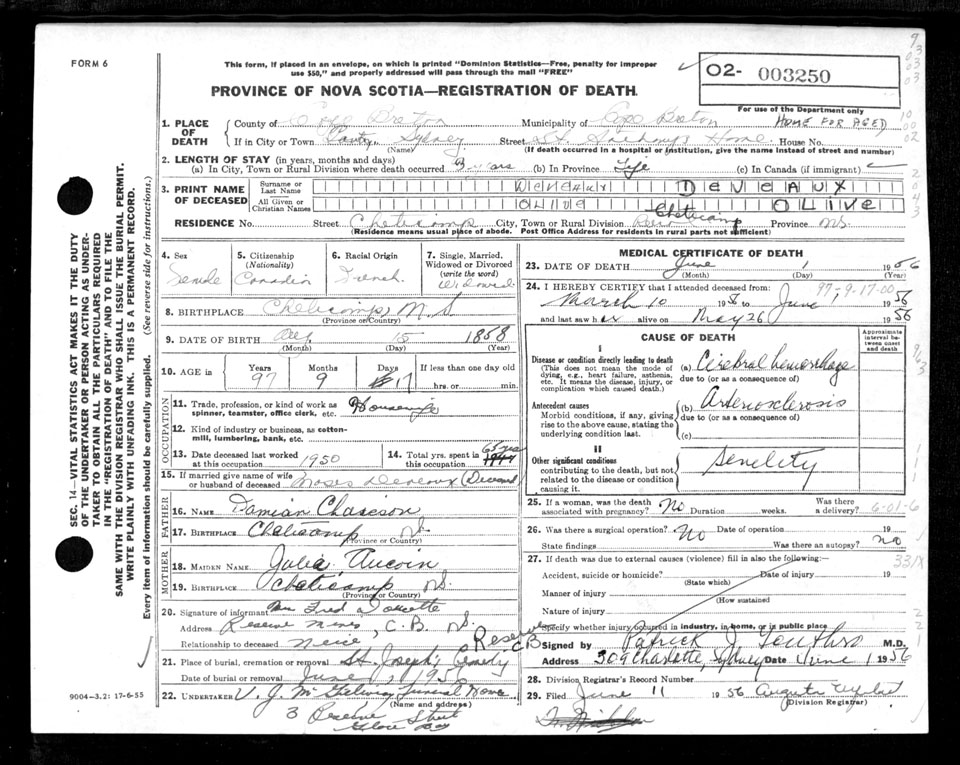 FORM 6
This form, if placed in an envelope, on which is printed "Dominion Statistics—Free, penalty for improper
use $50," and properly addressed will pass through the mail "FREE"
O2- 003250
PROVINCE OF NOVA SCOTIA—REGISTRATION OF DEATH
For use of the Department only
HOME FOR AGED
1. PLACE OF DEATH
County of Cape Breton Municipality of Cape Breton
If in City or Town Sydney Street St. Home House No.
(Name) (If death occurred in a hospital or institution, give the name instead of street and number)
2. LENGTH OF STAY (in years, months and days)
(a) In City, Town or Rural Division where death occurred 3 years (b) In Province Life (c) In Canada (if immigrant)
3. PRINT NAME OF DECEASED
Surname or Last Name DEVEAUX
All Given or Christian Names OLIVE OLive
Cheticamp
RESIDENCE No. Street Cheticamp City, Town or Rural Division Province N.S.
(Residence means usual place of abode. Post Office Address for residents in rural parts not sufficient)
4. Sex
Female
5. Citizenship
(Nationality)
Canadian
6. Racial Origin
French
7. Single, Married, Widowed or Divorced
(write the word)
Widowed
8. BIRTHPLACE Cheticamp, N.S.
(Province or Country)
9. DATE OF BIRTH Aug 15 1858
(Month) (Day) (Year)
10. AGE in Years Months Days If less than one day old
97 9 17 hrs. or min.
OCCUPATION
11. Trade, profession, or kind of work as
spinner, teamster, office clerk, etc. Housewife
12. Kind of industry or business, as cotton-
mill, lumbering, bank, etc.
13. Date deceased last worked
at this occupation 1950
14. Total yrs. spent in
this occupation 65 yrs
15. If married give name of wife
or husband of deceased Moses Deveaux (Deceased
FATHER
16. NAME Damian Chaisson
17. BIRTHPLACE Cheticamp N.S.
(Province or Country)
MOTHER
18. MAIDEN NAME Julia Aucoin
19. BIRTHPLACE Cheticamp N.S.
(Province or Country)
20. Signature of informant Mrs Fred Doucette
Address Reserve Mines, C.B. N.S.
Relationship to deceased Neice
21. Place of burial, cremation or removal St. Joseph's Cemetery Reserve C.B
Date of burial or removal June 1956
22. UNDERTAKER V. J. McGillivray Funeral Home
(Name and address)
3 Reserve Street
Glace Bay
MEDICAL CERTIFICATE OF DEATH
23. DATE OF DEATH June 1 1956
(Month) (Day) (Year)
97-9-17-00
24. I HEREBY CERTIFY that I attended deceased from:
March 10 195 to June 1 1956
and last saw her alive on May 26 1956
CAUSE OF DEATH
Approximate interval between onset and death
I
Disease or condition directly leading to death
(This does not mean the mode of
dying, e.g., heart failure, asthenia,
etc. It means the disease, injury, or
complication which caused death.)
(a) Cerebral hemorrhage
due to (or as a consequence of)
Antecedent causes
Morbid conditions, if any, giving
rise to the above cause, stating the
underlying condition last.
(b) Arteriosclerosis
due to (or as a consequence of)
(c)
II
Other significant conditions
contributing to the death, but not
related to the disease or condition
causing it.
Senility
25. If a woman, was the death
associated with pregnancy? No Duration weeks. Was there a delivery? 6-01-6
26. Was there a surgical operation? No Date of operation 19
State findings Was there an autopsy? no
27. If death was due to external causes (violence) fill in also the following:—
331X
Accident, suicide or homicide? Date of injury 19
(State which)
Manner of injury
(How sustained
Nature of injury
Specify whether injury occurred in industry, in home, or in public place
Signed by Patrick J. M.D.
Address 309 Charlotte, Sydney Date June 1 1956
28. Division Registrar's Record Number
29. Filed June 11 1956
(Division Registrar)
SEC. 14—VITAL STATISTICS ACT MAKES IT THE DUTY
OF THE UNDERTAKER OR PERSON ACTING AS UNDER-
TAKER TO OBTAIN ALL THE PARTICULARS REQUIRED
IN THE "REGISTRATION OF DEATH" AND TO FILE THE
SAME WITH THE DIVISION REGISTRAR WHO SHALL ISSUE THE BURIAL PERMIT.
WRITE PLAINLY WITH UNFADING INK. THIS IS A PERMANENT RECORD.
Every item of information should be carefully supplied. (See reverse side for instructions.)
9004-3.2: 17-6-55